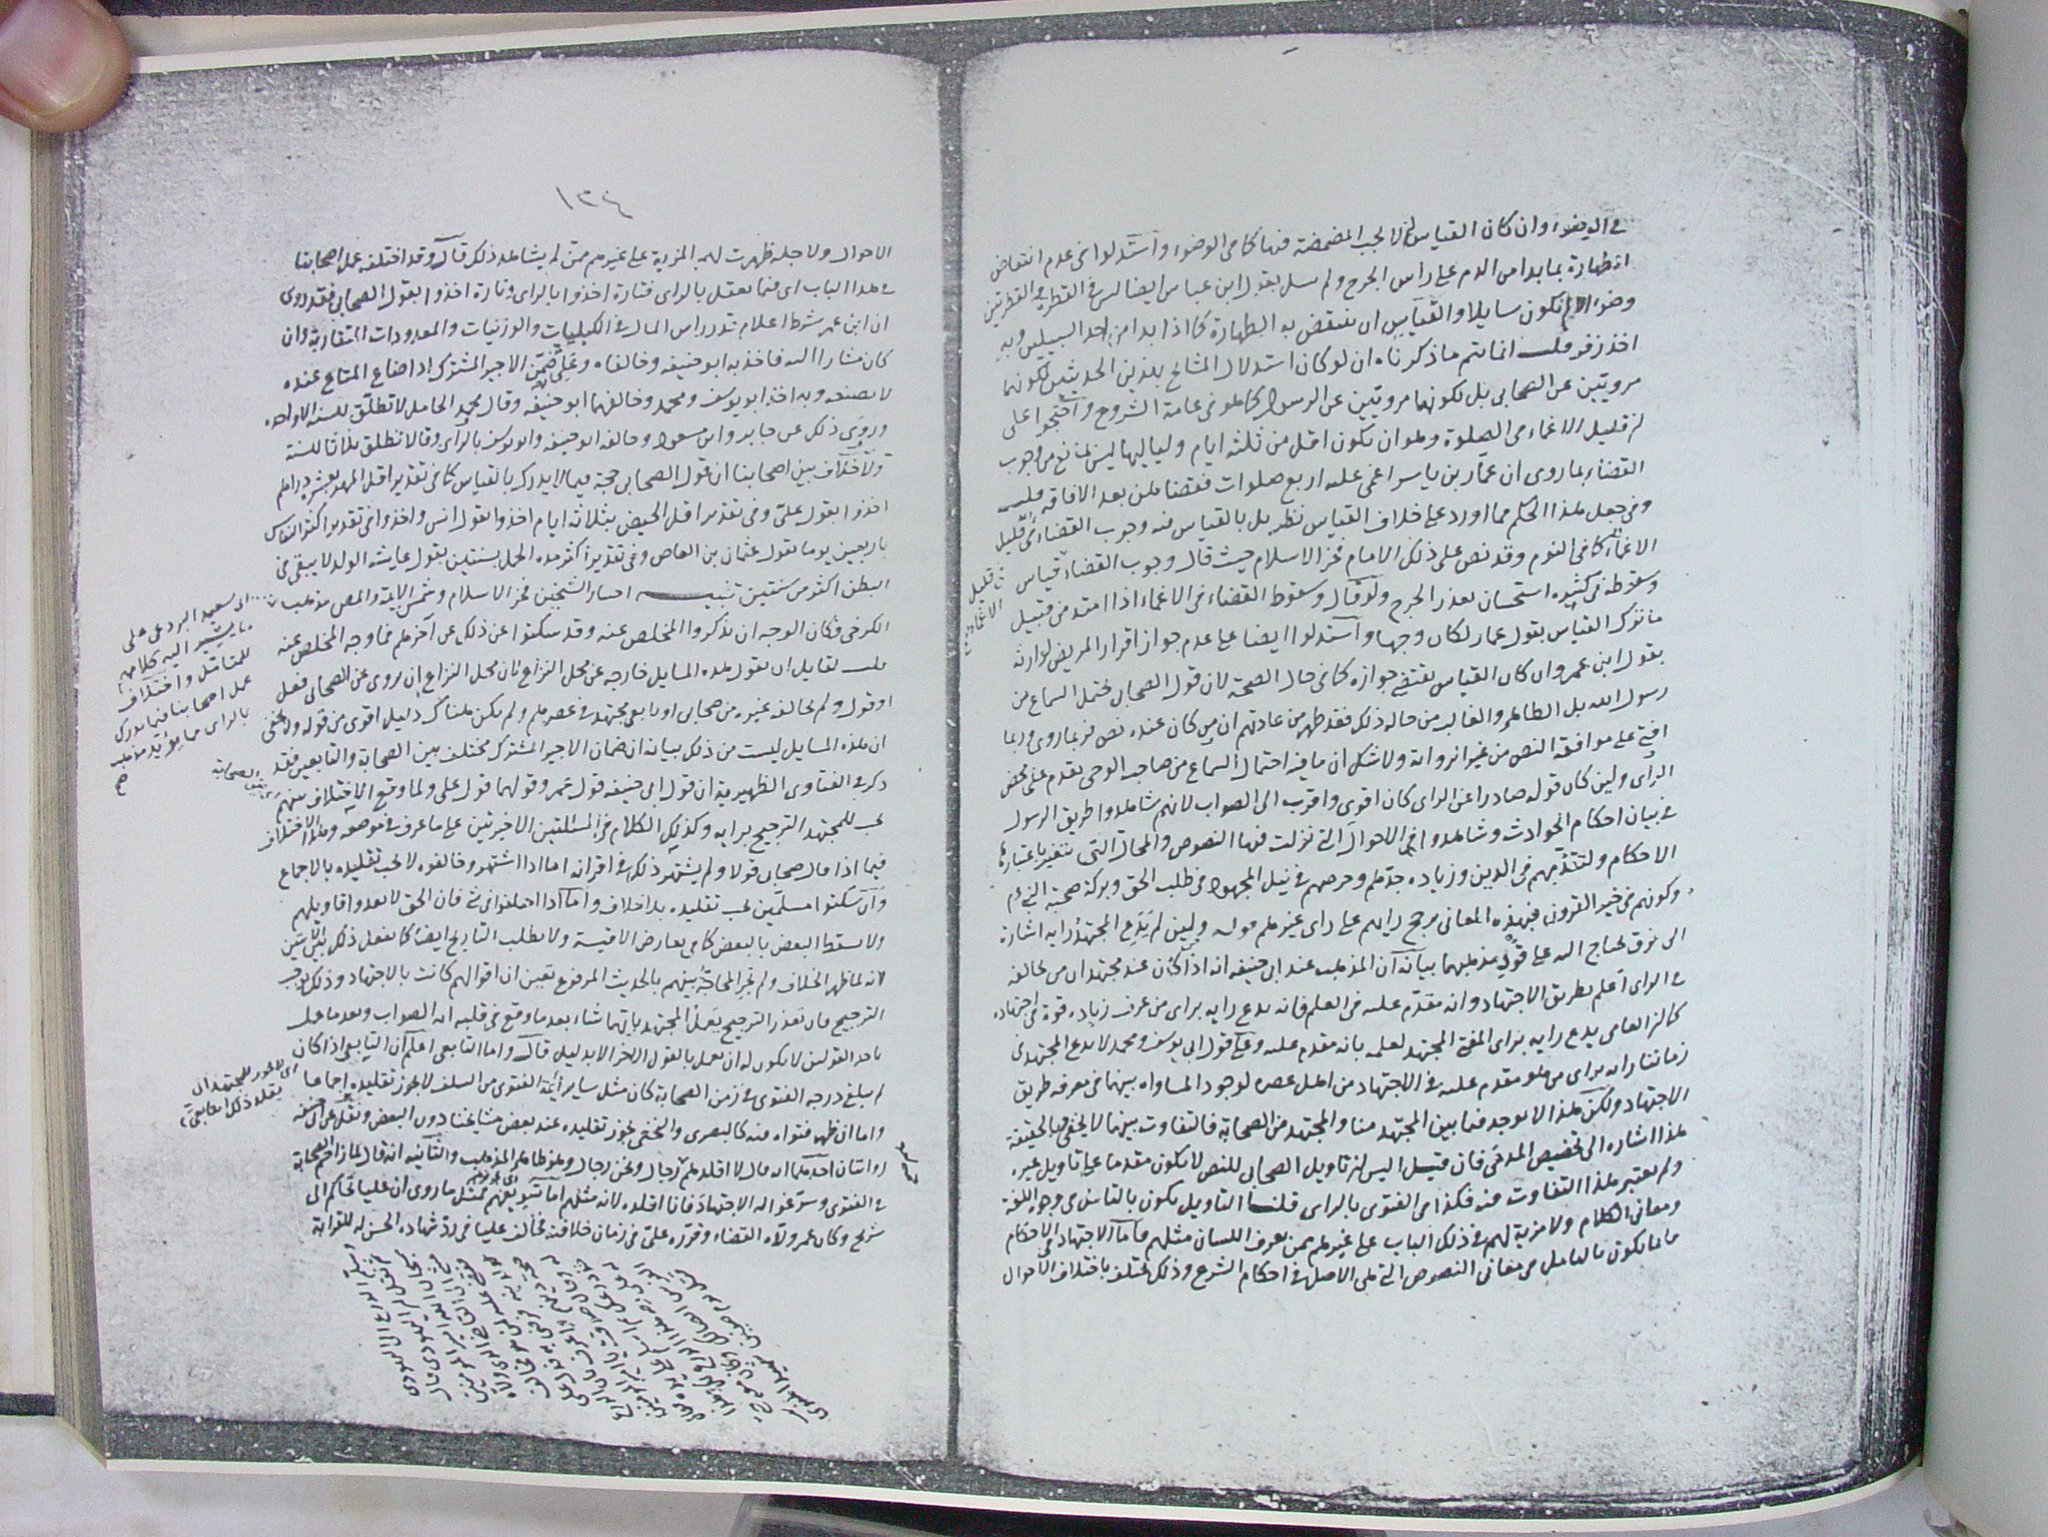 في الوضوء وان كان القياس ان لا تجب المضمضة فيها كما في الوضوء واستدلوا في عدم انتقاض
الطهارة بما بدا من الدم على راس الجرح ولم يسل بقول ابن عباس ايضا ليس في القطرة والقطرتين
وضوء الا ان تكون سايلا والقياس ان تنتقض به الطهارة كما اذا بدا من احد السبيلين وبه
اخذ زفر قلت انما يتم ما ذكرناه ان لو كان استدلال المشايخ بهذين الحديثين لكونهما
مرويتين عن الصحابي بل لكونهما مرويتين عن الرسول كما هو في عامة الشروح واحتجوا على
ان قليل الاغماء في الصلوة وهو ان يكون اقل من ثلثة ايام ولياليها ليس بمانع من وجوب
القضاء بما روى ان عمار بن ياسر اغمى عليه اربع صلوات فقضاهن بعد الافاقة قلت
وفي جعل هذا الحكم مما اورد على خلاف القياس نظر بل بالقياس فيه وجوب القضاء في قليل
الاغماء كما في النوم وقد نص على ذلك الامام فخر الاسلام حيث قال وجوب القضاء قياس
وسقوطه في كثيره استحسان بعذر الحرج ولو قال وسقوط القضاء في الاغماء اذا امتد من قبيل
ما نترك القياس بقول عمار لكان وجها واستدلوا ايضا على عدم جواز اقرار المريض لوارثه
بقول ابن عمر وان كان القياس يقتضي جوازه كما في حال الصحة لان قول الصحابي يحتمل السماع من
رسول الله بل الظاهر والغالب من حاله ذلك فقد ظهر من عادتهم ان من كان عنده نص فربما روى وربما
افتى على موافقة النص من غير الرواية ولا شك ان ما فيه احتمال السماع من صاحب الوحى يقدم على محض
الراى ولين كان قوله صادرا عن الراى كان اقوى واقرب الى الصواب لانهم شاهدوا طريق الرسول
في بيان احكام الحوادث وشاهدوا الاحوال التي نزلت فيها النصوص والمحال التي تتغير باعتبارها
الاحكام ولتقدمهم في الدين وزيادة جدهم وحرصهم في نيل المجهود في طلب الحق وبركة صحبة النبي
وكونهم في خير القرون فبهذه المعاني يرجح رايهم على راى غيرهم قوله ولين لم يدع المجتهد رايه اشارة
الى فرق يحتاج اليه على قود مذهبهما بيانه ان المذهب عند ابي حنيفه انه اذا كان عند مجتهد ان من يخالفه
في الراى اعلم بطريق الاجتهاد وانه مقدم عليه في العلم فانه يدع رايه براى من عرف زيادة قوة في اجتهاده
كما ان العامى يدع رايه براى المفتى المجتهد لعلمه بانه مقدم عليه وعلى قول ابي يوسف ومحمد لا يدع المجتهد في
زماننا رايه براى من هو مقدم عليه في الاجتهاد من اهل عصره لوجود المساواه بينهما في معرفة طريق
الاجتهاد ولكن هذا لا يوجد فيما بين المجتهد منا والمجتهد من الصحابة فالتفاوت بينهما لا يخفى وبالحقيقة
هذا اشارة الى تخصيص المدعى فان قيل اليس ان تاويل الصحابي للنص لا يكون مقدما على تاويل غيره
ولم يعتبر هذا التفاوت فيه فكذا في الفتوى بالراى قلنا التاويل يكون بالتامل في وجوه اللغة
ومعاني الكلام ولا مزية لهم في ذلك الباب على غيرهم ممن يعرف اللسان مثلهم فاما الاجتهاد في الاحكام
فانما يكون بالتامل في معاني النصوص التي هي الاصل في احكام الشرع وذلك يختلف باختلاف الاحوال
في قليل
الاغماء
١٣٤
الاحوال ولاجله ظهرت لهم المزية على غيرهم ممن لم يشاهد ذلك قال وقد اختلف عمل اصحابنا
في هذا الباب اى فيما يعقل بالراى فتارة اخذوا بالراى وتارة اخذوا بقول الصحابي فقد روى
ان ابن عمر شرط اعلام قدر راس المال في الكيليات والوزنيات والمعدودات المتقاربة وان
كان مشارا اليه فاخذ به ابو حنيفه وخالفاه وعلي ضمن الاجير المشترك اذا ضاع المتاع عنده
لا بصنعه وبه اخذ ابو يوسف ومحمد وخالفهما ابو حنيفه وقال محمد الحامل لا تطلق للسنة الا واحده
وروى ذلك عن جابر وابن مسعود وخالفه ابو حنيفه وابو يوسف بالراى وقالا تطلق ثلاثا للسنة
ولا خلاف بين اصحابنا ان قول الصحابي حجة فيما لا يدرك بالقياس كما في تقدير اقل المهر بعشرة دراهم
اخذوا بقول علي وفي تقدير اقل الحيض بثلاثة ايام اخذوا بقول انس واخذوا في تقدير اكثر النفاس
باربعين يوما بقول عثمان بن العاص وفي تقدير اكثر مدة الحمل بسنتين بقول عايشه الولد لا يبقى في
البطن اكثر من سنتين تنبيه اختيار الشيخين فخر الاسلام وشمس الايمة والمص مذهب
الكرخى فكان الوجه ان يذكروا المخلص عنه وقد سكتوا عن ذلك عن آخرهم فما وجه المخلص عنه
قلت لقايل ان يقول هذه المسايل خارجه عن محل النزاع فان محل النزاع ان يروى عن الصحابي فعل
او قول ولم يخالفه غيره من صحابي او تابعى مجتهد في عصرهم ولم يكن هناك دليل اقوى من قوله ولا يخفى
ان هذه المسايل ليست من ذلك بيانه ان ضمان الاجير المشترك مختلف بين الصحابة والتابعين فقد
ذكر في الفتاوى الظهيرية ان قول ابي حنيفه قول عمر وقولهما قول علي ولما وقع الاختلاف بينهم
يجب للمجتهد الترجيح برايه وكذلك الكلام في المسألتين الاخيرتين على ما عرف في موضعه وهذا الاختلاف
فيما اذا قال صحابي قولا ولم يشتهر ذلك في اقرانه اما اذا اشتهر وخالفوه لا يجب تقليده بالاجماع
وان سكتوا مسلمين يجب تقليده بلا خلاف واما اذا اختلفوا في شي فان الحق لا يعدو اقاويلهم
ولا يسقط البعض بالبعض كما في تعارض الاقيسة ولا يطلب التاريخ ايضا كما نفعل ذلك بين آيتين
لانه لما ظهر الخلاف ولم تجر المحاجة بينهم بالحديث المرفوع تعين ان اقوالهم كانت بالاجتهاد وذلك يوجب
الترجيح فان تعذر الترجيح يعمل المجتهد بايهما شاء بعد ما وقع في قلبه انه الصواب وبعد ما عمل
باحد القولين لا يكون له ان يعمل بالقول الاخر الا بدليل قال واما التابعى اعلم ان التابعى اذا كان
لم يبلغ درجة الفتوى في زمن الصحابة كان مثل ساير ائمة الفتوى من السلف لا يجوز تقليده اجماعا
واما ان ظهر فتواه فيه كالبصرى والنخعى يجوز تقليده عند بعض مشايخنا دون البعض ونقل عن ابي حنيفه
روايتان احدهما انه قال لا اقلدهم هم رجال ونحن رجال وهو ظاهر المذهب والثانيه انه قال لما زاحم الصحابة
في الفتوى وسوغوا له الاجتهاد فانا اقلده لانه مثلهم اما تسويغهم فمثل ما روى ان عليا تحاكم الى
شريح وكان عمر ولاه القضاء وقرره علي في زمان خلافته فخالف عليا في رد شهادة الحسن له للقرابة
ابى سعيد البردعى على
ما يشير اليه كلامهم
للمتامل واختلاف
عمل اصحابنا فيما يدرك
بالراى مما يؤيد مذهب
اى لا يجوز للمجتهد ان
يقلد ذلك التابعى